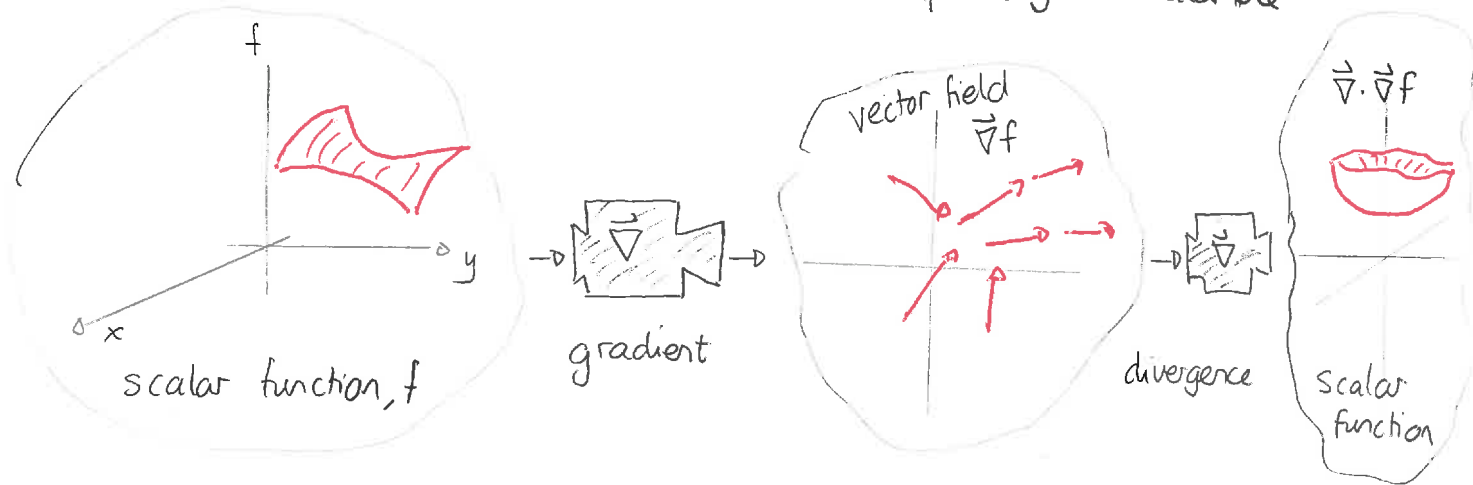 f
y
x
scalar function, f
∇⃗
gradient
vector field
∇⃗f
∇⃗
divergence
∇⃗·∇⃗f
scalar
function